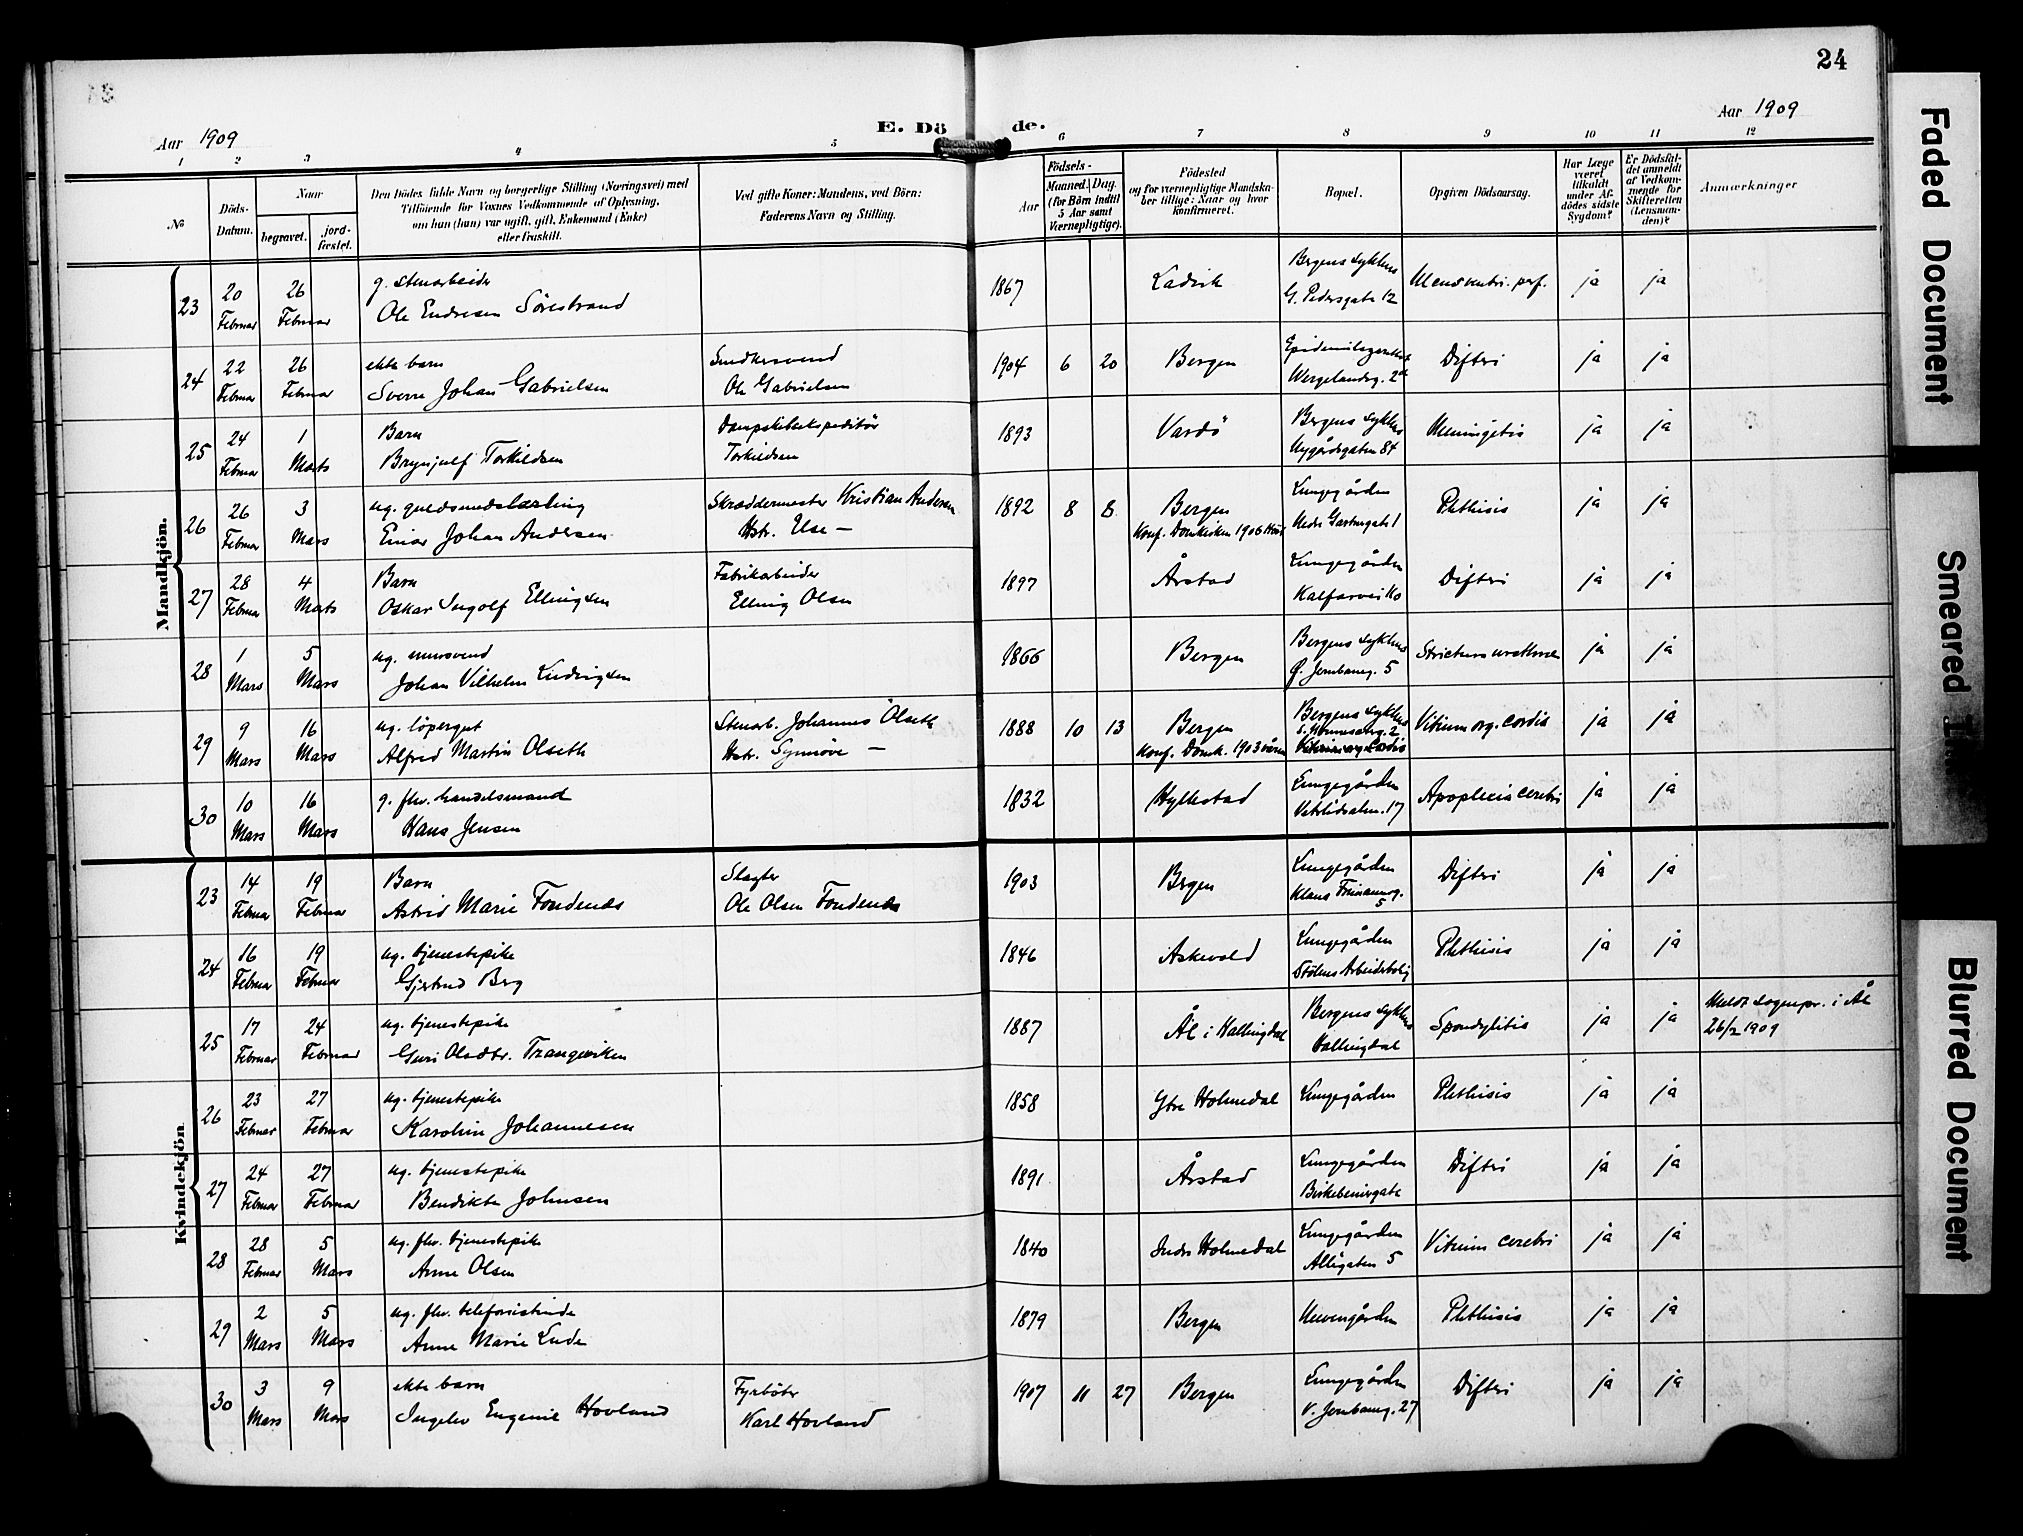 24
Aar 1909
E. Dö de.
Aar 1909
1 2 3 4 5 6 7 8 9 10 11 12
№
Döds-Datum.
Naar
begravet. jord-fæstet.
Den Dödes fulde Navn og borgerlige Stilling (Næringsvei) med
Tilföiende for Voxnes Vedkommende af Oplysning,
om han (hun) var ugift, gift, Enkemand (Enke)
eller fraskilt.
Ved gifte Koner: Mandens, ved Börn:
Faderens Navn og Stilling.
Födsels-
Aar
Maaned. Dag.
(for Börn indtil
5 Aar samt
Værnepligtige).
Födested
og for værnepligtige Mandska-
ber tillige: Naar og hvor
konfirmeret.
Bopæl.
Opgiven Dödsaarsag.
Har Læge
været
tilkaldt
under Af-
dödes sidste
Sygdom?
Er Dödsfal-
det anmeldt
af Vedkom-
mende for
Skifteretten
(Lensman-
den)?
Anmærkninger
Mandkjön.
23 20 Februar 26 Februar g. stenarbeider
Ole Endresen Sörestrand 1867 Ladvik Bergens Sykhus
G. Pedersgate 12 ja ja
24 22 Februar 26 Februar ekte barn
Sverre Johan Gabrielsen Smedsvend
Ole Gabrielsen 1904 6 20 Bergen
Wergelandsg. 2a Difteri ja ja
25 24 Februar 1 Marts Barn
Brynjulf Torkildsen Dampskibsekspeditör
Torkildsen 1893 Vardö Bergens Sykhus
Nygårdsgaten 84 Meningitis ja ja
26 26 Februar 3 Mars ug. guldsmedslærling
Einar Johan Andersen Skræddermester Kristian Andersen
Hstr. Else — 1892 8 8 Bergen
Konf. Domkirken 1906 Höst Lungegården
Nedr Gartnergate 1 Phthisis ja ja
27 28 Februar 4 Marts Barn
Oskar Ingolf Ellingsen Fabrikarbeider
Elling Olsen 1897 Årstad Lungegården
Kalfarvei Difteri ja ja
28 1 Mars 5 Mars ug. mursvend
Johan Vilhelm Ludvigsen 1866 Bergen Bergens Sykhus
Ö. Jernbaneg. 5 ja ja
29 9 Mars 16 Mars ug. löpergut
Alfred Martin Olseth Stenarb. Johannes Olseth
Hstr. Synnöve — 1888 10 13 Bergen
Konf. Domk. 1903 våren Bergens Sykhus
Vitium org. cordis ja ja
30 10 Mars 16 Mars g. fhv. handelsmand
Hans Jensen 1832 Hyllestad Lungegården
Vetrlidsalm. 17 Apoplexia cerebri ja ja
Kvindekjön
23 14 Februar 19 Februar Barn
Astrid Marie Fondenes Slagter
Ole Olsen Fondenes 1903 Bergen Lungegården
5 Difteri ja ja
24 16 Februar 19 Februar ug. tjenestepike
Gjertrud Berg 1846 Askevold Lungegården
Stölens Arbeiderbolig Phthisis ja ja
25 17 Februar 24 Februar ug. tjenestepike
Guri Olsdtr. Trangviken 1887 Ål i Hallingdal Bergens Sykhus
Hallingdal Spondylitis ja ja Meldt Sognepr. i Ål
26/2 1909
26 23 Februar 27 Februar ug. tjenestepike
Karolin Johannesen 1858 Ytre Holmedal Lungegården Phthisis ja ja
27 24 Februar 27 Februar ug. tjenestepike
Bendikte Johnsen 1891 Årstad Lungegården
Birkebeinergate Difteri ja ja
28 28 Februar 5 Mars ug. fhv. tjenestepike
Anne Olsen 1840 Indre Holmedal Lungegården
Allégaten 5 Vitium cerebri ja ja
29 2 Mars 5 Mars ug. fhv. telefonistinde
Anne Marie Lude 1879 Bergen Phthisis ja ja
30 3 Mars 9 Mars ekte barn
Ingelev Eugenie Hovland Fyrböter
Karl Hovland 1907 11 27 Bergen Lungegården
V. Jernbaneg. 27 Difteri ja ja
Faded Document
Smeared
Blurred Document